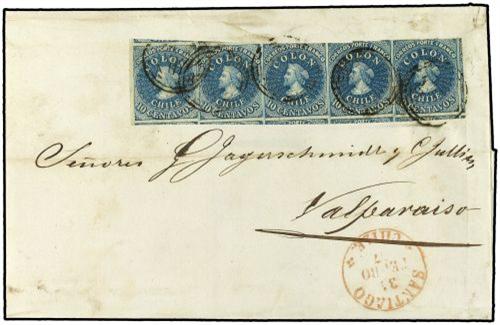 CORREOS PORTE FRANCO CORREOS PORTE FRANCO CORREOS PORTE FRANCO CORREOS PORTE FRANCO
COLON COLON COLON COLON COLON
CHILE CHILE CHILE CHILE CHILE
10 CENTAVOS 10 CENTAVOS 10 CENTAVOS 10 CENTAVOS 10 CENTAVOS
Señores Jagerschmidt y Jullian
Valparaiso
SANTIAGO
31
CHILE